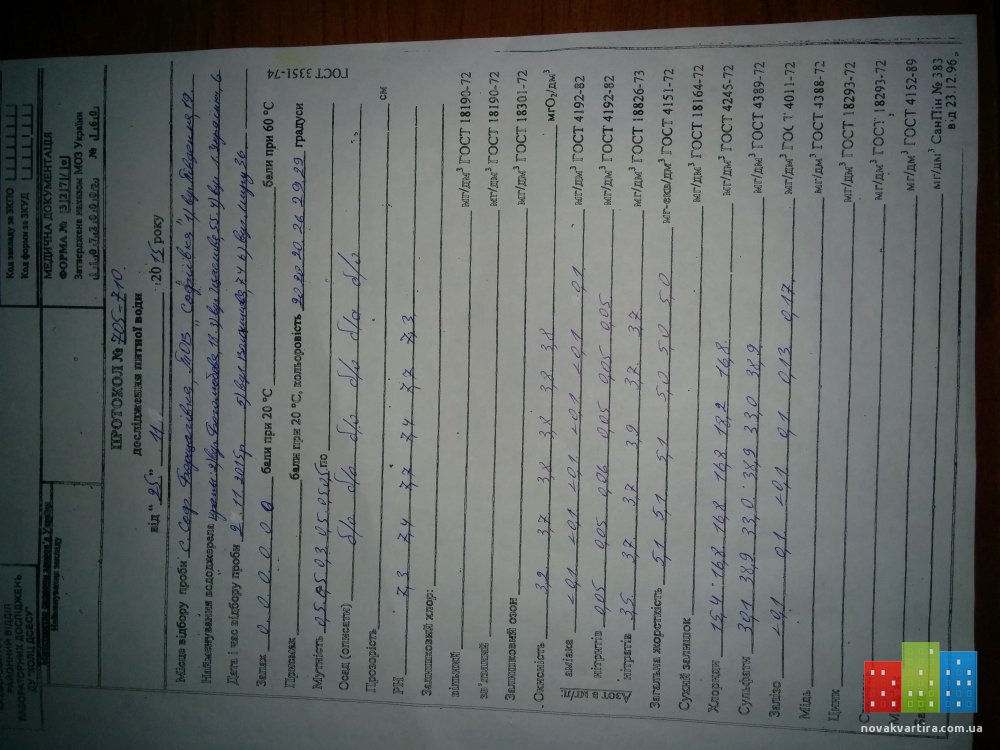 РАЙОННИЙ ВІДДІЛ
ЛАБОРАТОРНИХ ДОСЛІДЖЕНЬ
Найменування закладу
Код закладу за ЗКПО
Код форми за ЗКУД
МЕДИЧНА ДОКУМЕНТАЦІЯ
ФОРМА № |3|2|7|/|о|
Затверджене наказом МОЗ України
№ 1 6 0
ПРОТОКОЛ № 705-710
дослідження питної води
від " 25 " 11 2015 року
Місце відбору проби с. Соф. Борщагівка,
Найменування вододжерела
Дата і час відбору проби 2 .11.2015р
Запах 0 0 0 0 0 0 бали при 20 °С бали при 60 °С
Присмак бали при 20 °С, кольоровість 20 20 20 26 29 29 градуси
ГОСТ 3351-74
Мутність 0,5 0,5 0,3 0,5 0,5 0,5
Осад (описати) б/о б/о б/о б/о б/о б/о
Прозорість см
РН 7,3 7,4 7,7 7,4 7,7 7,3
Залишковий хлор:
вільний мг/дм³ ГОСТ 18190-72
зв'язаний мг/дм³ ГОСТ 18190-72
Залишковий озон мг/дм³ ГОСТ 18301-72
Окисність 3,2 3,7 3,8 3,8 3,8 3,8 мгО₂/дм³
Азот в мг/л:
аміака <0,1 <0,1 <0,1 <0,1 <0,1 0,1 мг/дм³ ГОСТ 4192-82
нітритів 0,05 0,05 0,06 0,05 0,05 0,05 мг/дм³ ГОСТ 4192-82
нітратів 3,5 3,7 3,7 3,9 3,7 3,7 мг/дм³ ГОСТ 18826-73
Загальна жорсткість 5,1 5,1 5,1 5,0 5,0 5,0 мг-екв/дм³ ГОСТ 4151-72
Сухий залишок мг/дм³ ГОСТ 18164-72
Хлориди 15,4 16,8 16,8 16,8 18,2 16,8 мг/дм³ ГОСТ 4245-72
Сульфати 39,1 38,9 33,0 38,9 33,0 38,9 мг/дм³ ГОСТ 4389-72
Залізо <0,1 0,1 <0,1 0,1 0,13 0,17 мг/дм³ ГОСТ 4011-72
Мідь мг/дм³ ГОСТ 4388-72
Цинк мг/дм³ ГОСТ 18293-72
мг/дм³ ГОСТ 18293-72
мг/дм³ ГОСТ 4152-89
мг/дм³ СанПін № 383
від 23.12.96
novakvartira.com.ua